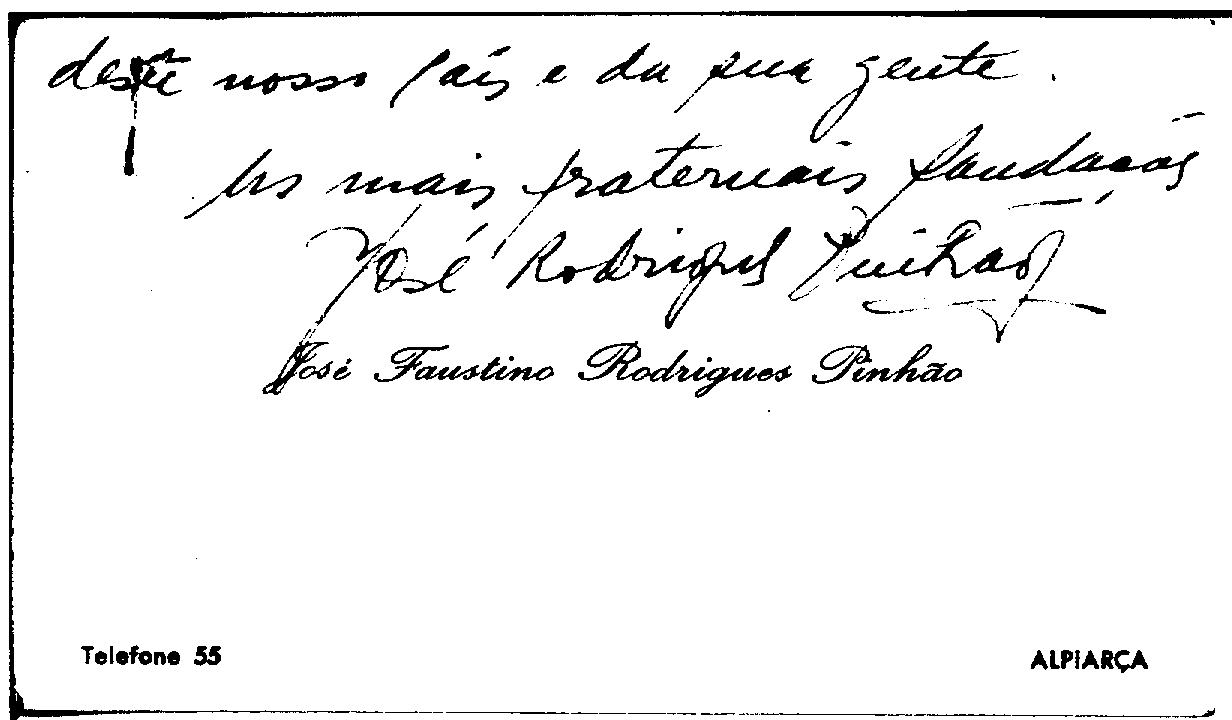 deste nosso País e da sua gente.
As mais fraternais saudações
José Rodrigues Pinhão
José Faustino Rodrigues Pinhão
Telefone 55
ALPIARÇA